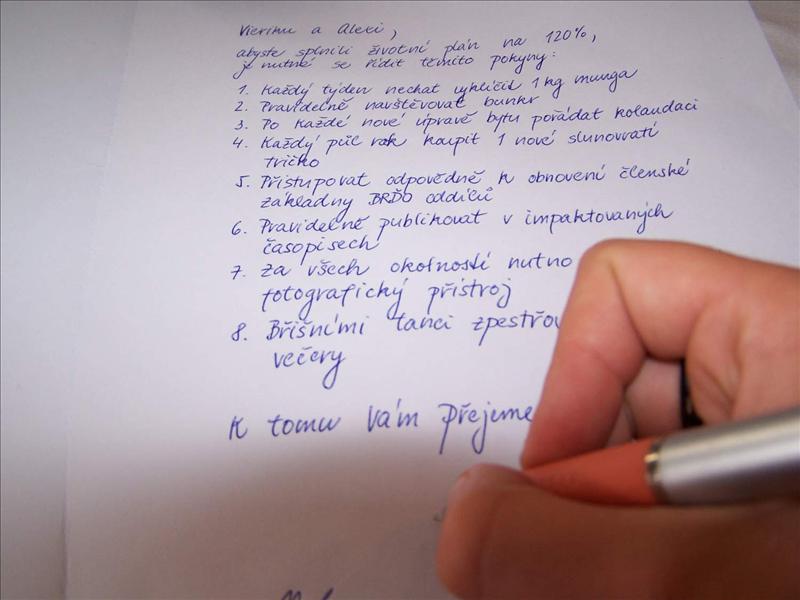 Vierinu a Alexi,
abyste splnili životní plán na 120%,
je nutné se řídit těmito pokyny:
1. Každý týden nechat vyklíčit 1 kg munga
2. Pravidelně navštěvovat bunkr
3. Po každé nové úpravě bytu pořádat kolaudaci
4. Každý půl rok koupit 1 nové slunovratí
tričko
5. Přistupovat odpovědně k obnovení členské
základny BRĎO oddílů
6. Pravidelně publikovat v impaktovaných
časopisech
7. Za všech okolností nutno
fotografický přístroj
8. Břišními tanci zpestřov
večery
K tomu Vám přejeme